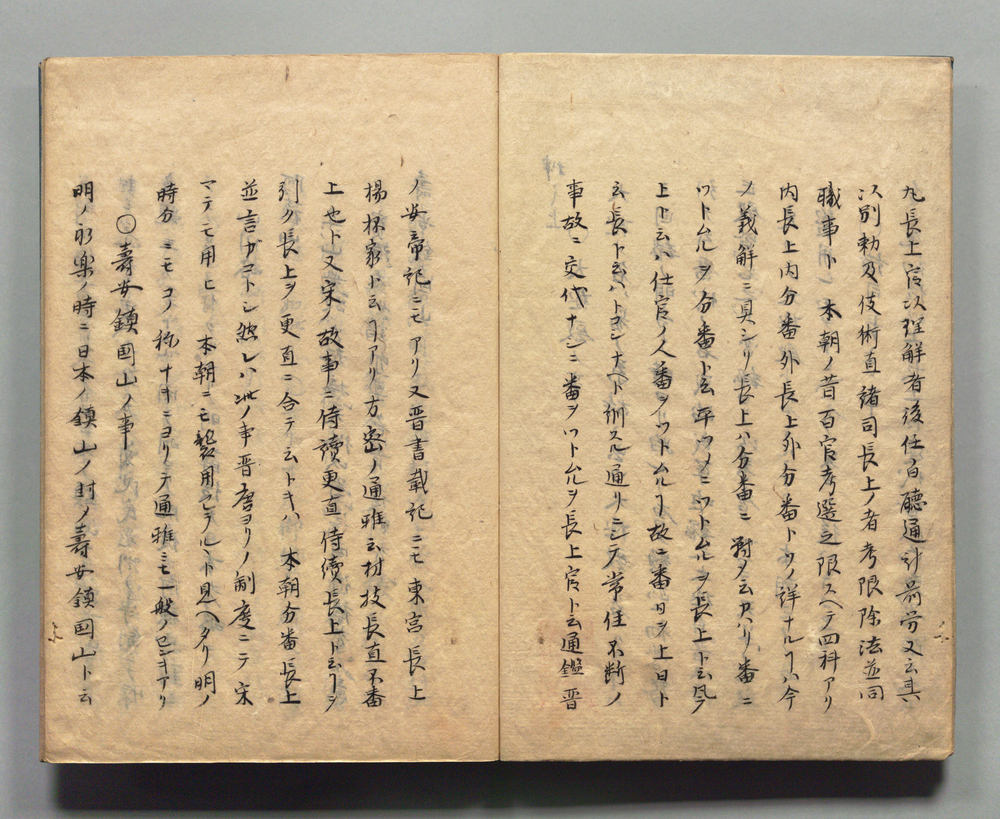 凡長上官以理解者後任日聽通計前勞又云其
以別勅及伎術直諸司長上ノ者考限除法並同
職事ト 本朝ノ昔百官考選之限スヘテ四科アリ
内長上内分番外長上外分番トワノ詳ナルヿハ今
ノ義解ニ具シリ長上ハ分番ニ對メ云タハリ番ニ
ツトムルヲ分番ト云平ツメニツトムルヲ長上ト云凡ソ
上ト云ハ仕官ノ人番ヲツトムルヿ故ニ番日ヲ上日ト
云長ト云ハトコシナヘト訓スル通リニシテ常住不断ノ
事故ニ交代ナシニ番ヲツトムルヲ長上官ト云通鑑晋
ノ安帝記ニモアリ又晋書載記ニモ東宮長上
楊抹家ト云ヿアリ方密ノ通雅云材技長直不番
上也ト又宋ノ故事ニ侍讀更直侍續長上ト云ヿヲ
引ク長上ヲ更直ニ合テ云トキハ 本朝分番長上
並言カコトシ然レハ此ノ事晋唐ヨリノ制度ニテ宋
マテモ用ヒ 本朝ニモ襲用アラルヽト見ヘタリ明ノ
時分ニモコノ称ナキニヨリテ通雅ニモ一般ノ
壽安鎮國山ノ事
明ノ永楽ノ時ニ日本ノ鎮山ノ封ノ壽安鎮國山ト云